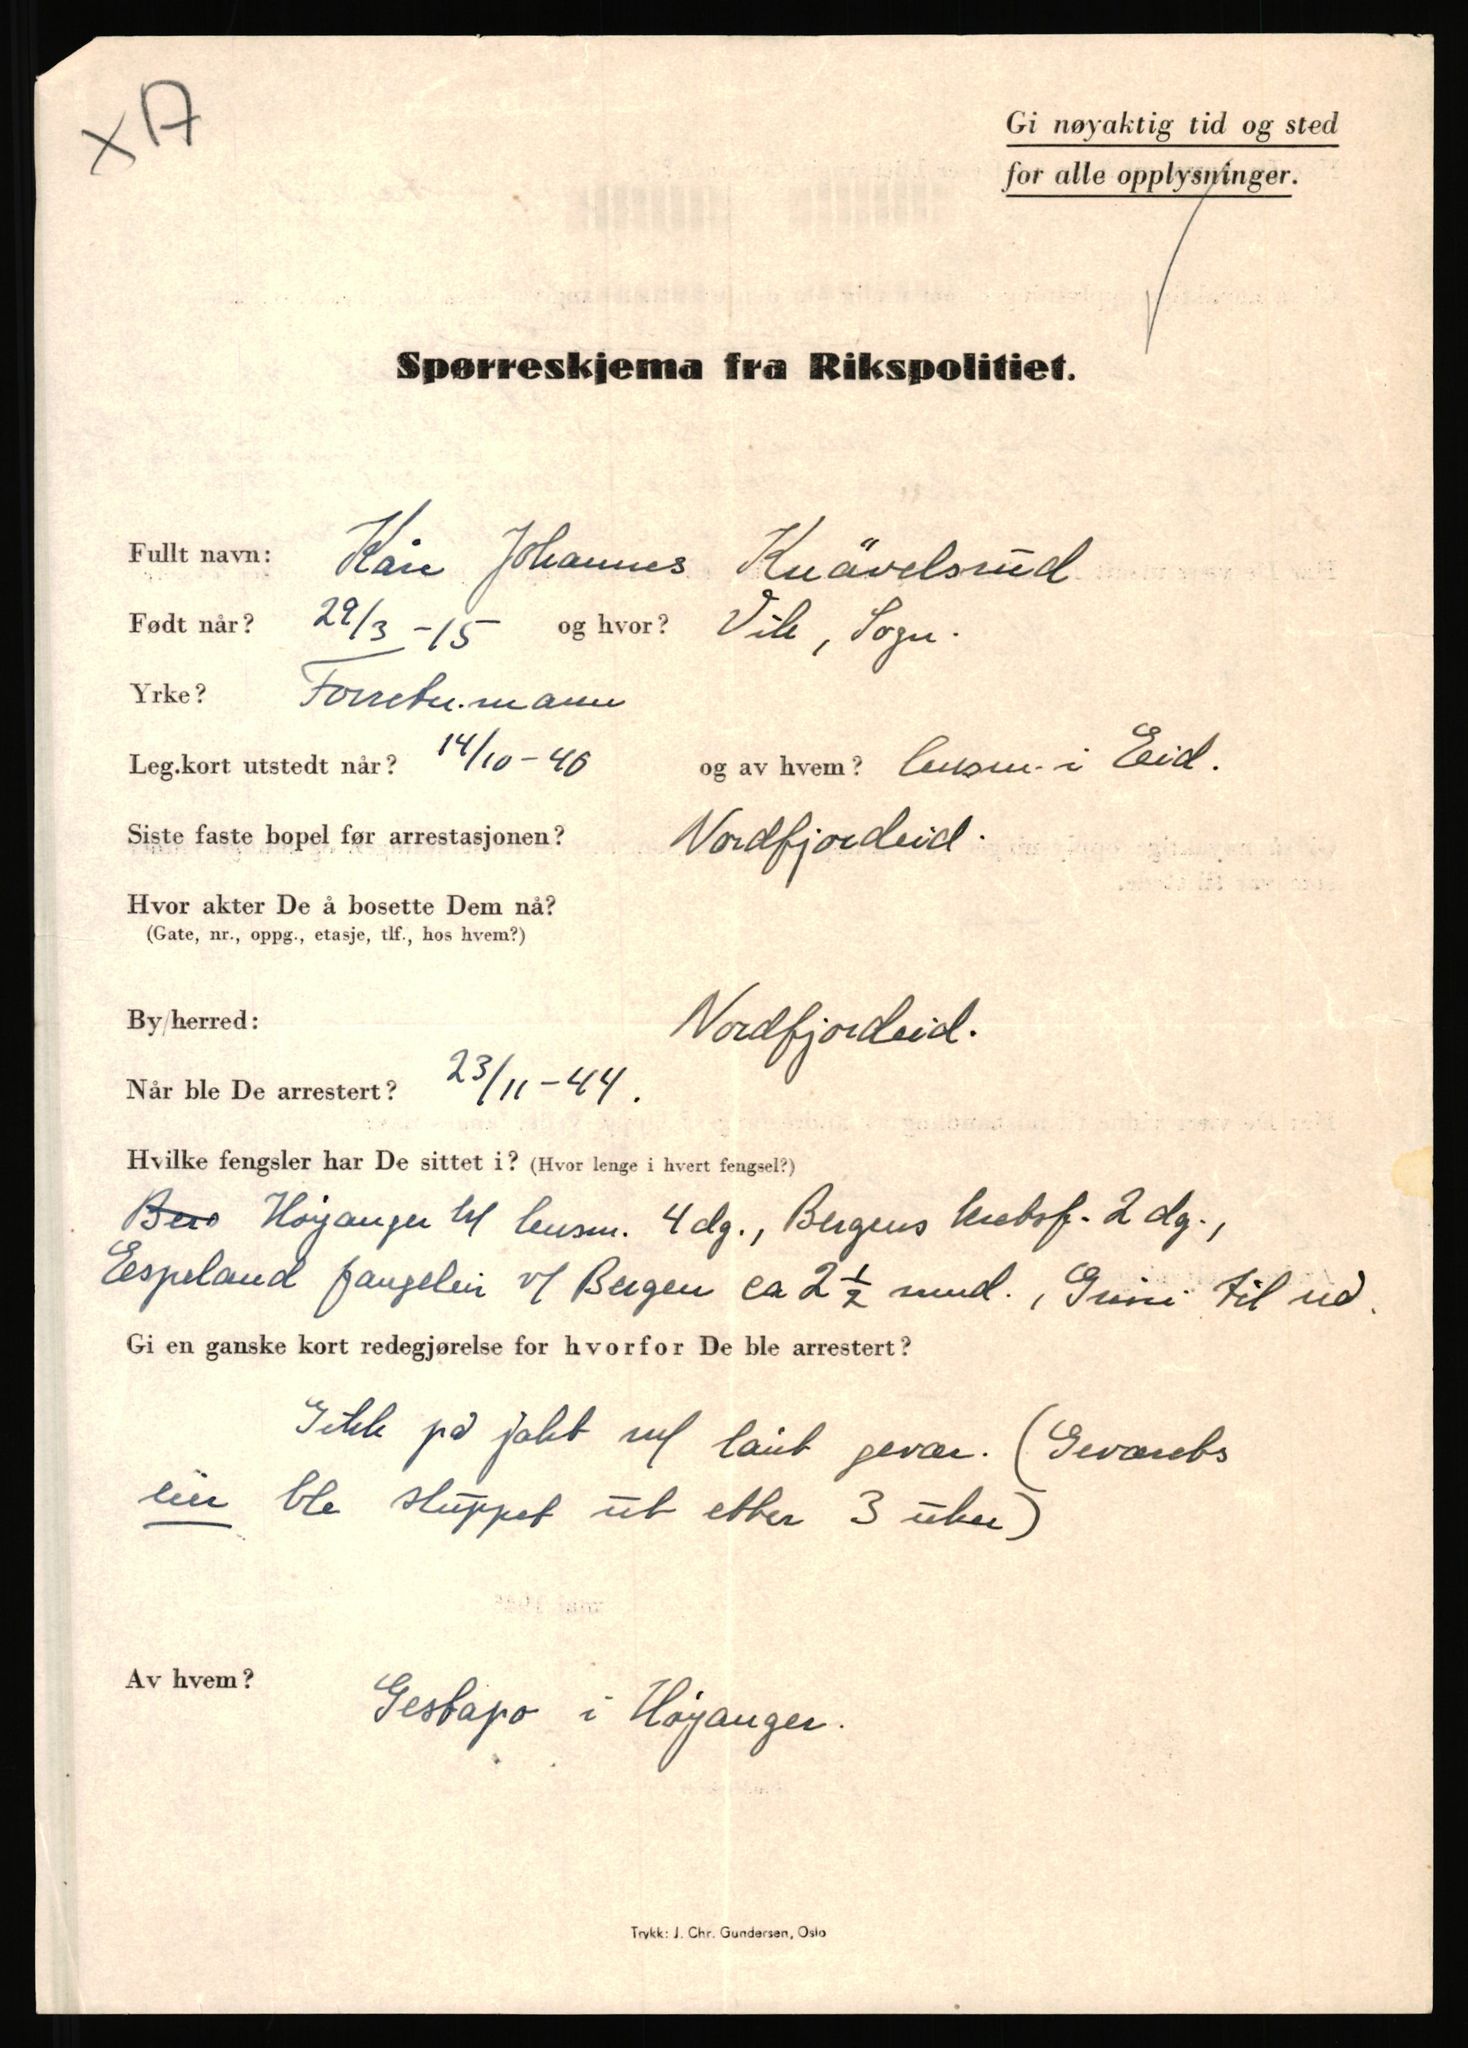 xA
Gi nøyaktig tid og sted
for alle opplysninger.
Spørreskjema fra Rikspolitiet.
Fullt navn: Kåre Johannes Knåvelsrud
Født når? 29/3-15 og hvor? Vik, Sogn.
Yrke? Forretn.mann
Leg.kort utstedt når? 14/10-40 og av hvem? lensm. i Eid.
Siste faste bopel før arrestasjonen? Nordfjordeid.
Hvor akter De å bosette Dem nå?
(Gate, nr., oppg., etasje, tlf., hos hvem?)
By/herred: Nordfjordeid.
Når ble De arrestert? 23/11-44.
Hvilke fengsler har De sittet i? (Hvor lenge i hvert fengsel?)
Ber Høyanger lensm. 4 dg., Bergens kretsf. 2 dg.,
Espeland fangeleir v/ Bergen ca 2 1/2 mnd., Grini til nå.
Gi en ganske kort redegjørelse for hvorfor De ble arrestert?
Gikk på jakt m/ lånt gevær. (Geværets
eier ble sluppet ut etter 3 uker)
Av hvem? Gestapo i Høyanger.
Trykk: J. Chr. Gundersen, Oslo